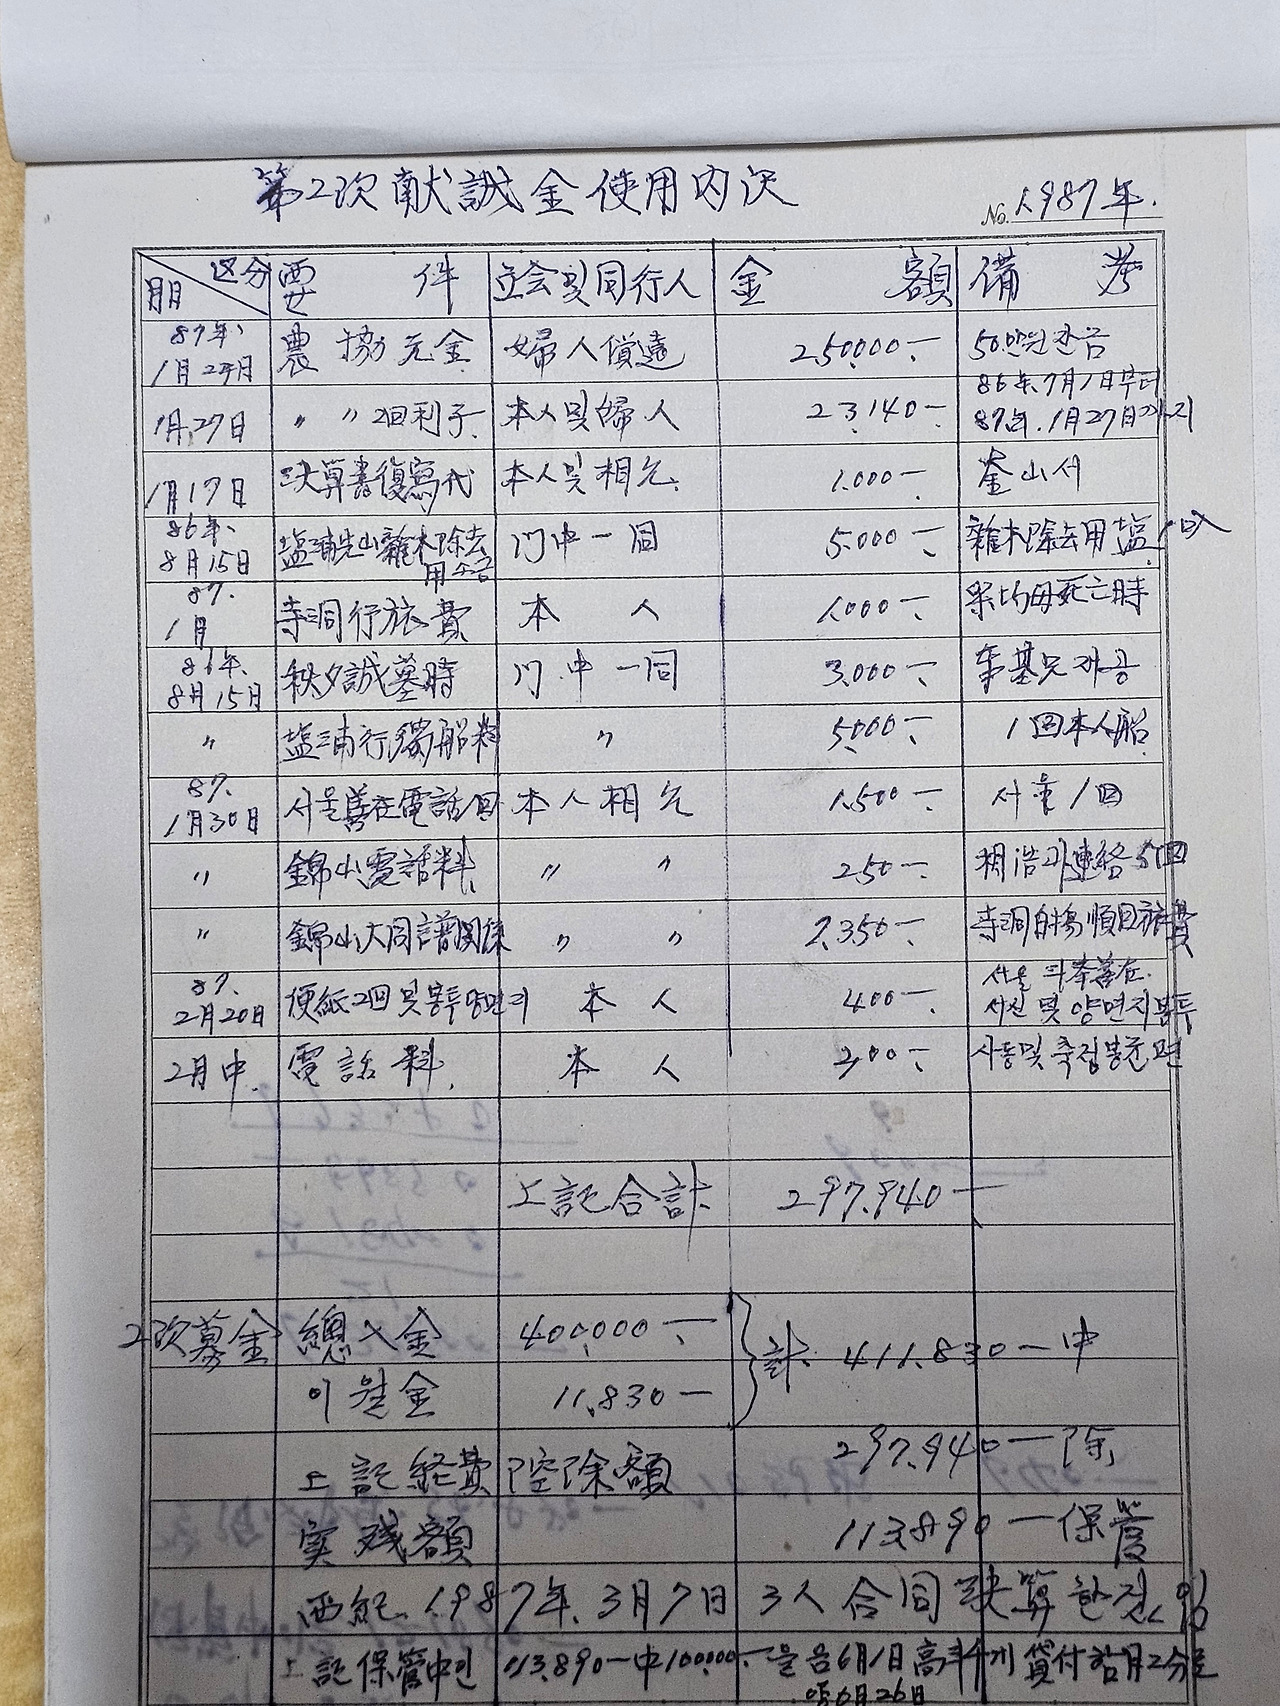 第2次献誠金使用内次
No. 1.987年.
区分 月日 要件 立会및同行人 金額 備考
87年、1月24日 農協元金 婦人償還 250000.- 50만원잔금
1月27日 〃 〃 2回利子 本人및婦人 23.140- 86年.7月1日부터 87年.1月27日까지
1月17日 決算書復寫代 本人및相允. 1.000- 釜山서
86年、8月15日 塩浦先山雜木除去用소금 門中一同 5.000- 雜木除去用塩
87.1月 寺洞行旅費 本人 1.000- 母死亡時
86年.8月15日 秋夕誠墓時 門中一同 3.000-
〃 塩浦行獨船料 〃 5.000- 1回本人船
87.1月30日 서울善在電話1回 本人相允 1.500- 서울1回
〃 錦山電話料. 〃 〃 250-
〃 錦山大同譜関係 〃 〃 2.350-
87.2月20日 便紙2回및봉투양면지 本人 400- 서신및양면지봉투
2月中. 電話料. 本人 300-
上記合計. 297.940-
2次募金 總入金 400.000- 計. 411.830-中
이월金 11.830-
上記経費 控除額 297.940-除
実残額 113.890-保管
西紀.1987年.3月7日 3人合同決算한것.임
上記保管中인 113.890-中100.000-을 음6月1日 貸付
음6月26日